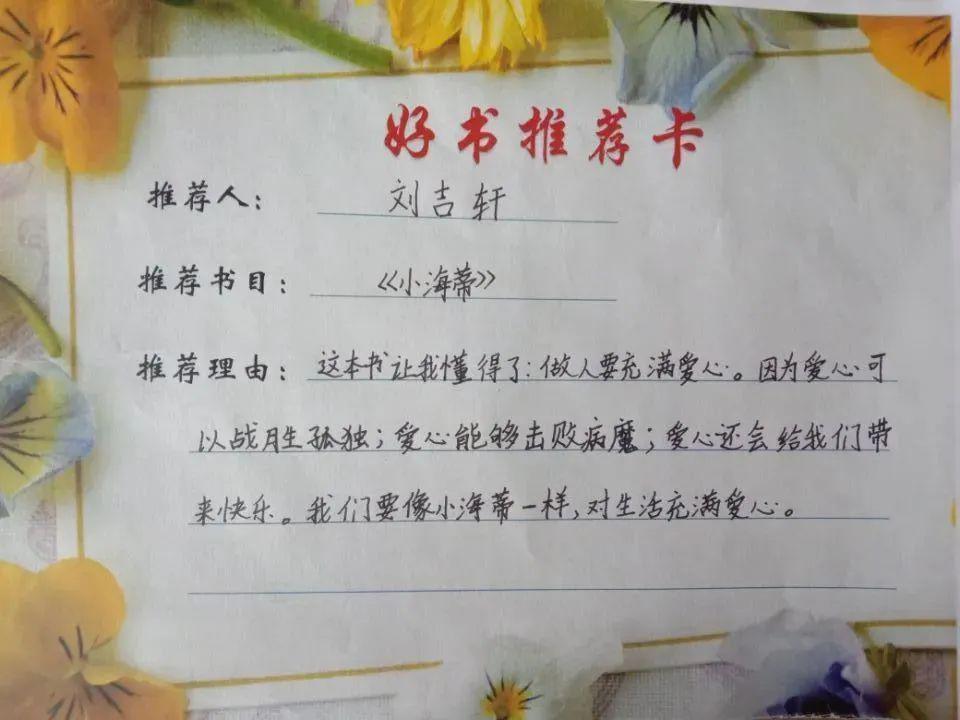 好书推荐卡
推荐人： 刘吉轩
推荐书目： 《小海蒂》
推荐理由： 这本书让我懂得了：做人要充满爱心。因为爱心可
以战胜孤独；爱心能够击败病魔；爱心还会给我们带
来快乐。我们要像小海蒂一样，对生活充满爱心。